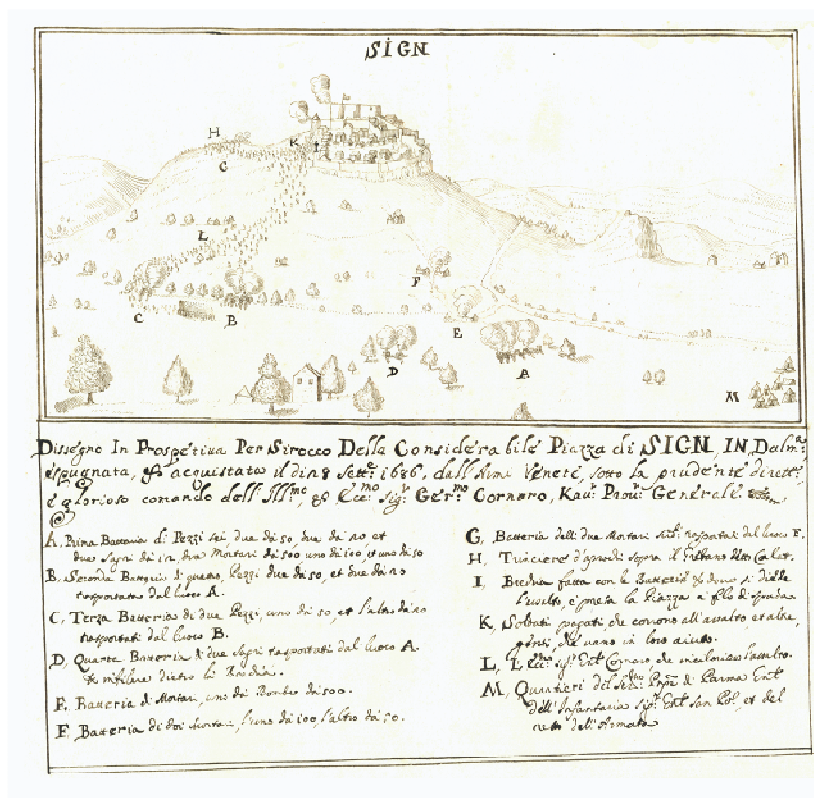 SIGN
H
K I
G
L
F
C
B
E
D
A
M
Dissegno In Prospetiva Per Sirocco Della Considerabile Piazza di SIGN, IN Dalm.a
espugnata, et acquistata il di 28 sett.e 1686, dall'Armi Venete, sotto la prudente dirett.e
è glorioso comando dell' Ill.mo, et Ecc.mo Sig.r Ger.mo Cornero, Kau.r Prou.r Generale
A, Prima Battaria di Pezzi sei due da 50, due da 20 et
due Sagri da 12, due Mortari da 500 uno da 100, et uno da 50
B, Seconda Battaria di quatro, Pezzi due da 50, et due da 20
trasportata dal luoco A.
C, Terza Batteria di due Pezzi, uno da 50, et l'altro da 20
trasportati dal luoco B.
D, Quarta Batteria di due Sagri trasportati dal luoco A
dietro li
E, Batteria di Mortari, uno da Bombe da 500.
F, Batteria di doi Mortari, l'uno da 100, l'altro da 50.
G, Batteria delli due Mortari trasportati dal luoco F.
H, Trinciere sopra il detto
I, Brechia fatta con le Batterie di dove si diede
l'assalto, e presa la Piazza a fllo di spada.
K, Soldati pagati, che corrono all'assalto et altre
genti, che vanno in loro aiuto.
L, L' Ecc.mo Sig.r Cornaro, che l'assalto.
M, Quartieri del Ser.mo di Parma
dell' Infantaria Sig.r San Pol, et del
resto dell' Armata